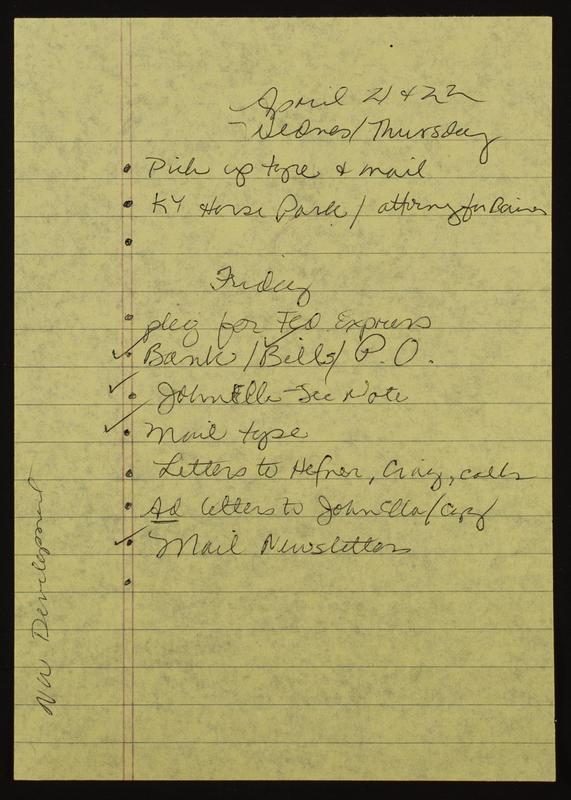 April 21 & 22
Wednes/Thursday
Pick up type & mail
KY Horse Park / attorney for
Friday
pkg for Fed Express
Bank / Bills / P.O.
JohnElla - See Note
Mail type
Letters to Hefner, Craig, calls
Ad letters to JohnElla/Copy
Mail Newsletters
Development